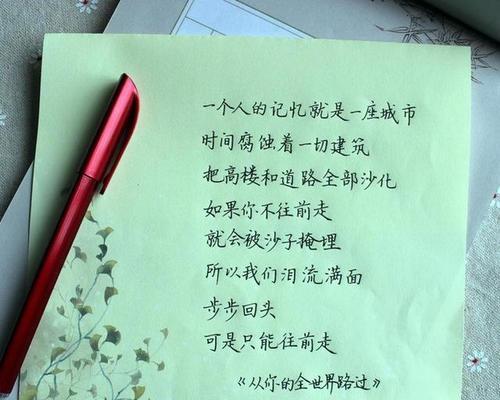 一个人的记忆就是一座城市
时间腐蚀着一切建筑
把高楼和道路全部沙化
如果你不往前走
就会被沙子掩埋
所以我们泪流满面
步步回头
可是只能往前走
《从你的全世界路过》